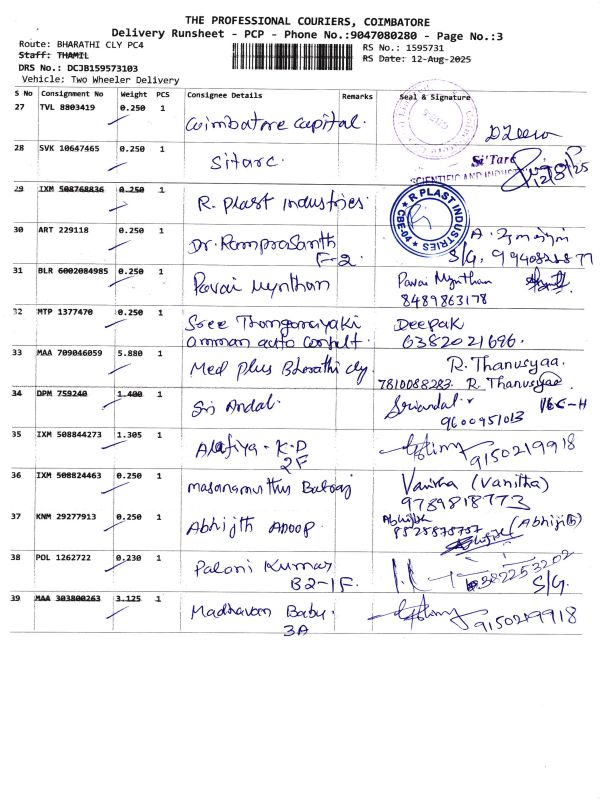 THE PROFESSIONAL COURIERS, COIMBATORE
Delivery Runsheet - PCP - Phone No.:9047080280 - Page No.:3
Route: BHARATHI CLY PC4 RS No.: 1595731
Staff: THAMIL RS Date: 12-Aug-2025
DRS No.: DCJB159573103
Vehicle: Two Wheeler Delivery
S No Consignment No Weight PCS Consignee Details Remarks Seal & Signature
27 TVL 8803419 0.250 1
Coimbatore capital.
28 SVK 10647465 0.250 1
Sitarc. Si'Tarc
SCIENTIFIC AND INDUST
12/8/25
29 IXM 508768836 0.250 1
R. Plast industries. R PLAST INDUSTRIES
CBE-04
30 ART 229118 0.250 1
Dr. Ramprasanth
F-2. S/G,
31 BLR 6002084985 0.250 1
Pavai Mynthan Pavai Mynthan
8489863178
32 MTP 1377470 0.250 1
Sree Thanganayaki Deepak
amman auto consult. 6382021696.
33 MAA 709046059 5.880 1
Med plus Bharathi cly R. Thanusyaa.
7810088283 R. Thanusyaa
34 DPM 759240 1.400 1
Sri Andal. Sriandal.
9600951013
35 IXM 508844273 1.305 1
Alafiya - K.D
2F 9150219918
36 IXM 508824463 0.250 1
masanamuthu Vanitha (Vanitha)
9789818773
37 KNM 29277913 0.250 1
Abhijith Anoop. (Abhijith)
38 POL 1262722 0.230 1
Palani Kumar
B2-1F. S/G.
39 MAA 303800263 3.125 1
Madhavan Babu.
3A 9150219918